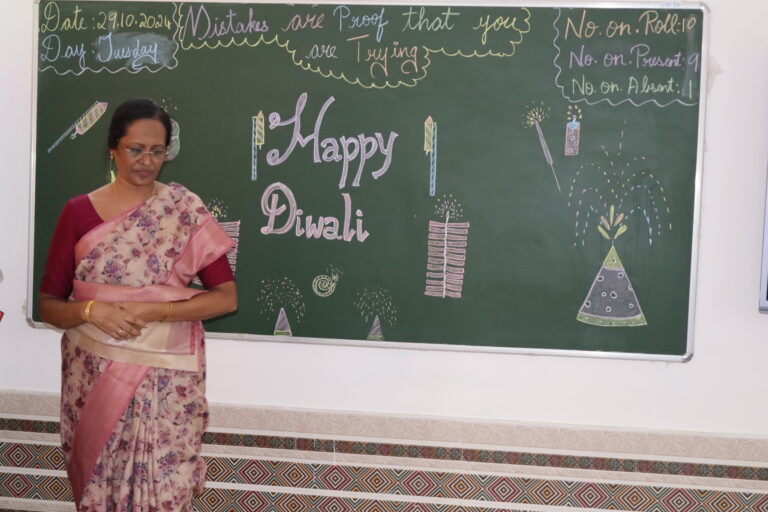 Date: 29.10.2024
Day: Tuesday
Mistakes are Proof that you
are Trying
No. on. Roll: 10
No. on. Present: 9
No. on. Absent: 1
Happy
Diwali